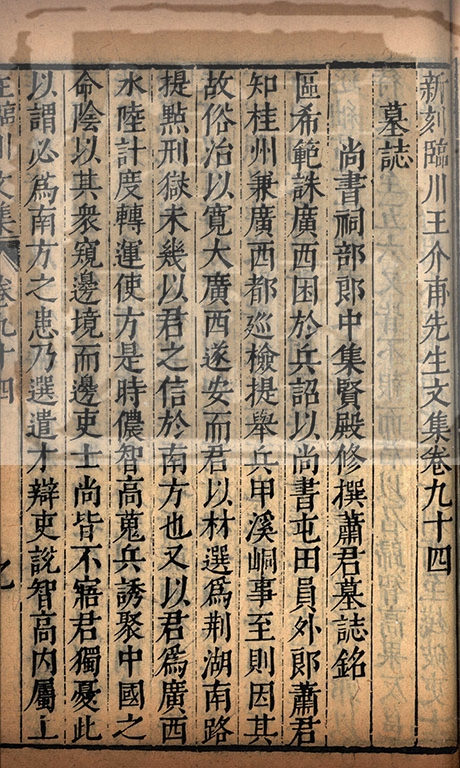 新刻臨川王介甫先生文集卷九十四
墓誌
尚書祠部郎中集賢殿修撰蕭君墓誌銘
區希範誅廣西困於兵詔以尚書屯田員外郎蕭君
知桂州兼廣西都廵檢提舉兵甲溪峒事至則因其
故俗治以寛大廣西遂安而君以材選爲荆湖南路
提㸃刑獄未幾以君之信於南方也又以君爲廣西
水陸計度轉運使方是時儂智高蒐兵誘聚中國之
命陰以其衆窺邊境而邊吏士尚皆不寤君獨憂此
以謂必爲南方之患乃選遣才辯吏說智高内屬上
王臨川文集 卷九十四